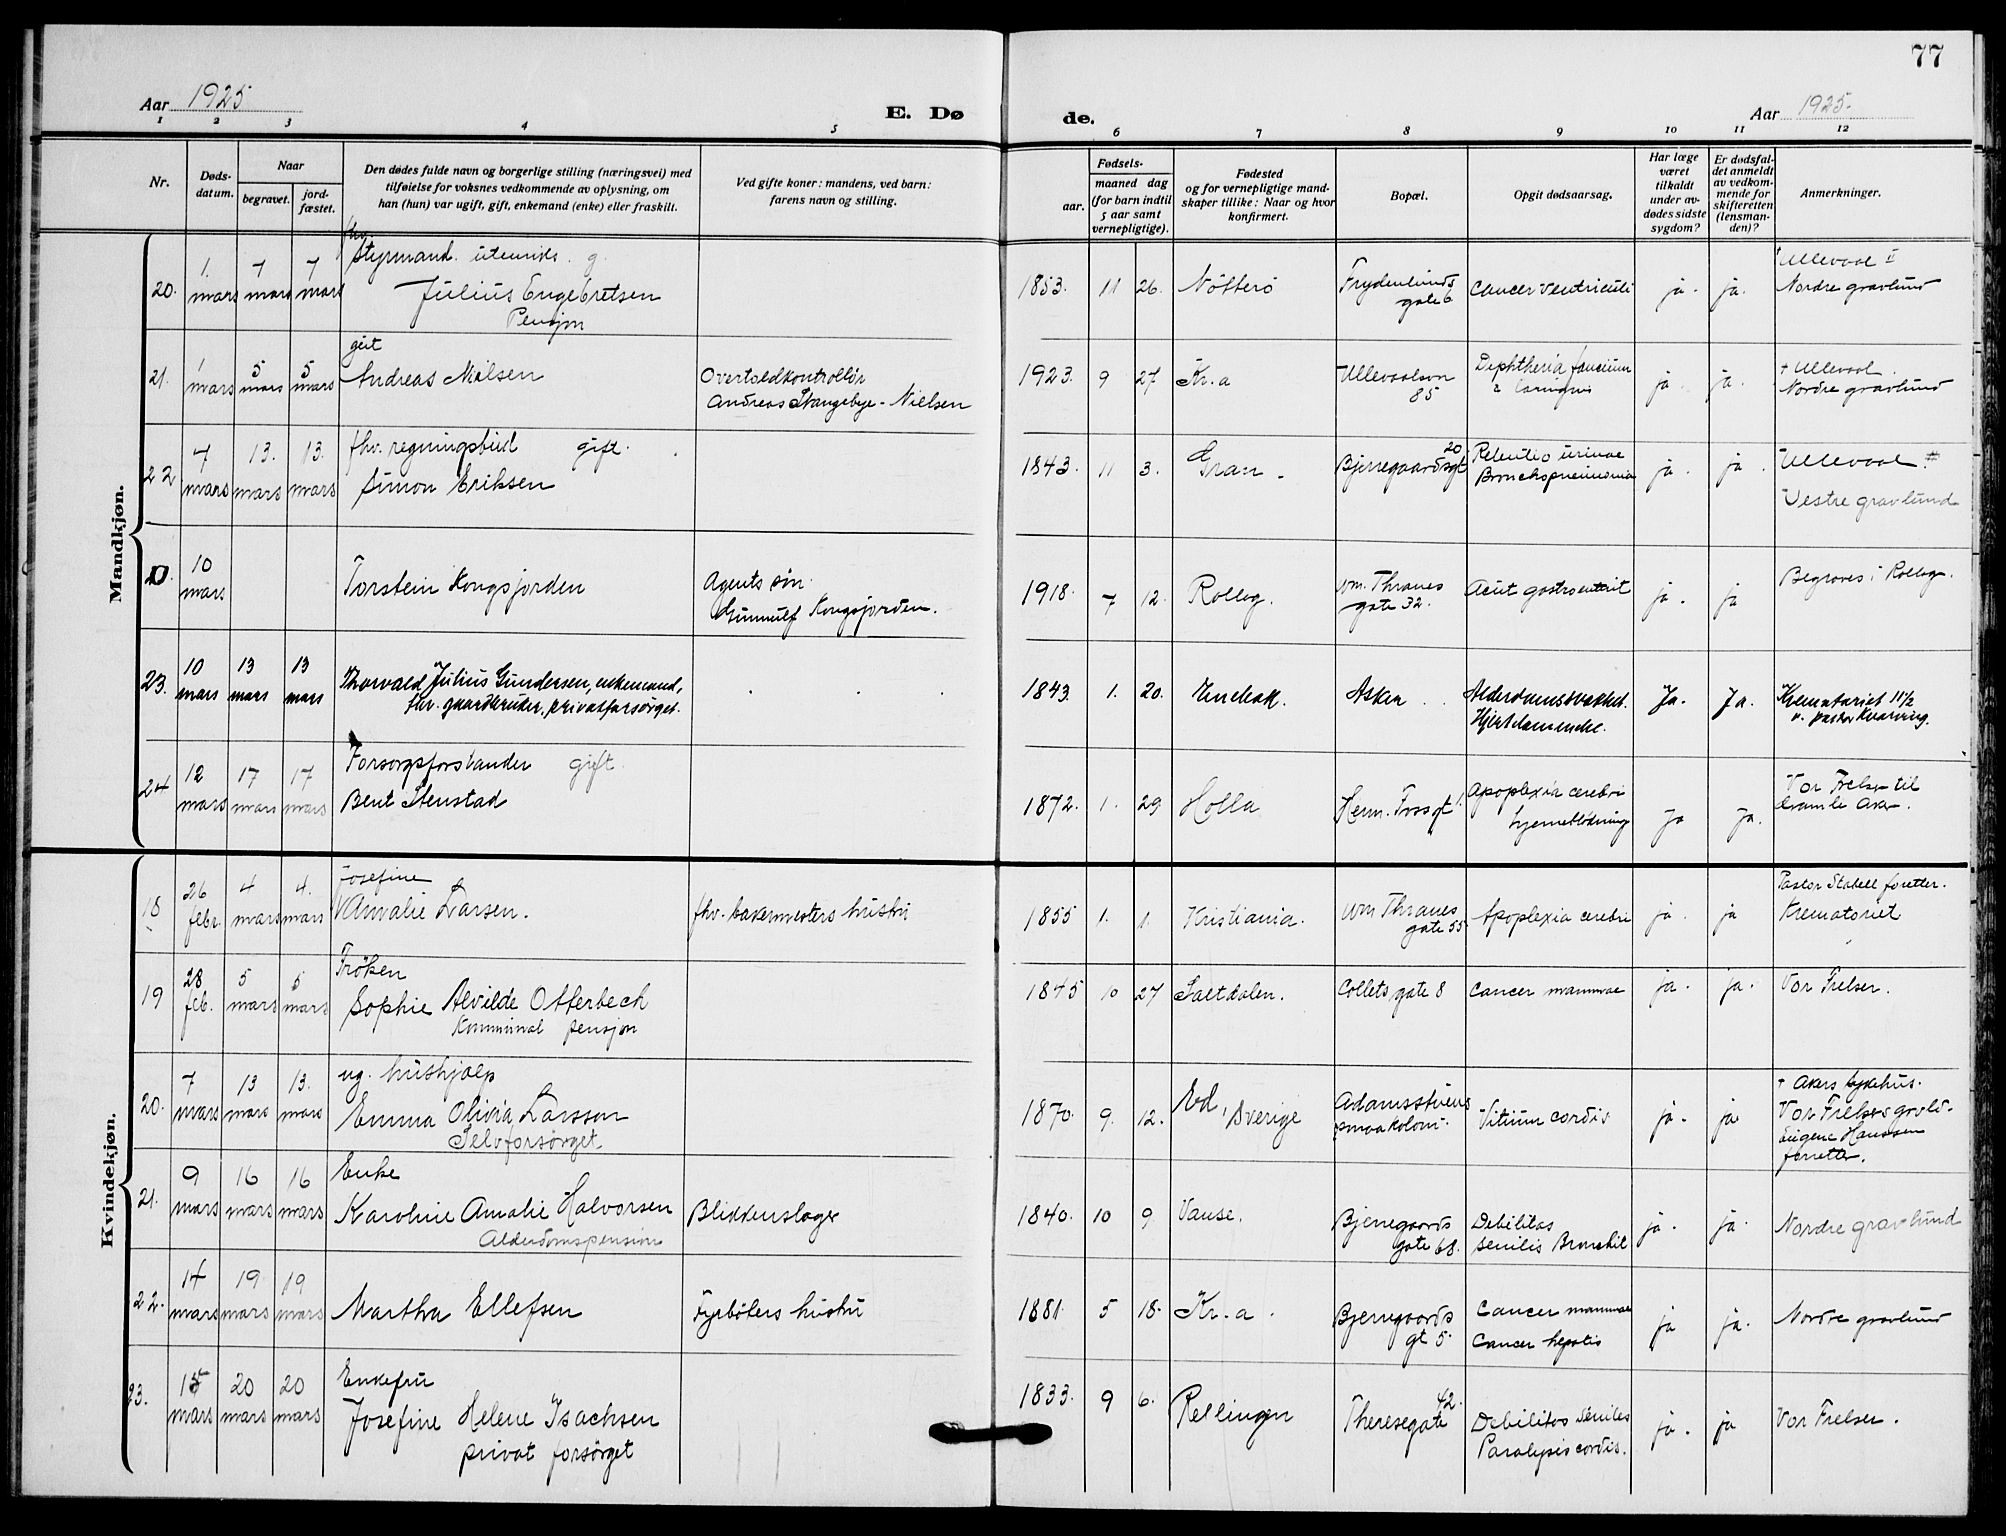 77
Aar 1925
E. Dø
de.
Aar 1925.
1 2 3 4 5 6 7 8 9 10 11 12
Nr.
Døds-
datum.
Naar
begravet.
jord-
fæstet.
Den dødes fulde navn og borgerlige stilling (næringsvei) med
tilføielse for voksnes vedkommende av oplysning, om
han (hun) var ugift, gift, enkemand (enke) eller fraskilt.
Ved gifte koner: mandens, ved barn:
farens navn og stilling.
Fødsels-
aar.
maaned dag
(for barn indtil
5 aar samt
vernepligtige).
Fødested
og for vernepligtige mand-
skaper tillike: Naar og hvor
konfirmert.
Bopæl.
Opgit dødsaarsag.
Har læge
været
tilkaldt
under av-
dødes sidste
sygdom?
Er dødsfal-
det anmeldt
av vedkom-
mende for
skifteretten
(lensman-
den)?
Anmerkninger.
Mandkjøn.
20. 1. mars 7 mars 7 mars
fhv.
Styrmand utenriks. g.
Julius Engebretsen
Pensjon
1853. 11 26. Nötterö
Frydenlunds
gate 6
cancer ventriculi
ja. ja.
Ullevaal
Nordre gravlund
21. 1 mars 5 mars 5 mars
Andreas Nielsen
Overtoldkontrollör
Andreas Stangebye-Nielsen
1923. 9 27 Kr.a
Ullevaalsvn
85
Diphtheria faucium
ja. ja.
+ Ullevaal.
Nordre gravlund
22 7 mars 13. mars 13. mars
fhv. regningsbud gift.
Simon Eriksen
1843. 11 3. Gran
Bjerregaardsgt
20
Retentio urinae
Bronchopneumonia
ja. ja.
Ullevaal
Vestre gravlund
10 mars
Torstein Kongsjorden
Agents sön
Gunnulf Kongsjorden.
1918. 7 12. Rolleg.
Wm. Thranes
gate 32.
Acut gastroenterit
ja. ja
Begraves i Rolleg.
23. 10 mars 13 mars 13 mars
Thorvald Julius Gundersen, enkemand,
fhv. gaardbruker, privatforsörget.
1843. 1. 20. Enebak.
Asker
Alderdomssvakhet.
Hjertelammelse.
Ja. Ja.
Krematoriet 11 1/2
v. pastor Kvarving.
24 12 mars 17 mars 17 mars
Forsorgsforstander gift
Bent Stenstad
1872. 1. 29 Holla
Herm. Fossgt
Apoplexia cerebri
hjerneblödning
ja ja.
Vor Frelser til
Gamle Aker.
Kvindekjøn.
18 26 febr. 4 mars 4. mars
Josefine
Amalie Larsen.
fhv. bakermesters hustru
1855 1. 1. Kristiania.
Wm Thranes
gate 55.
Apoplexia cerebri
ja. ja
Pastor Stabell foretter.
Krematoriet
19 28 feb. 5 mars 5 mars
Fröken
Sophie Alvilde Otterbech
Kommunal pensjon
1845 10 27 Saltdalen.
Collets gate 8
cancer mammae
ja. ja.
Vor Frelser.
20. 7 mars 13 mars 13. mars
ug. hushjælp
Emma Olivia Larsson
Selvforsörget
1870. 9. 12. Ed, Sverige
Adamsstuens
smaakoloni.
Vitium cordis
ja. ja
+ Akers sykehus.
Vor Frelsers gravld.
Eugene Hanssen
forretter.
21. 9 mars 16 mars 16 mars
Enke
Karoline Amalie Halvorsen
Alderdomspension
Blikkenslager
1840. 10 9. Vanse.
Bjerregaards
gate 68.
Debilitas
senilis Bronchit
ja. ja.
Nordre gravlund
22. 14 mars 19 mars 19 mars
Martha Ellefsen
Fyrböters hustru
1881. 5 18. Kr.a.
Bjerregaards
gt 5.
Cancer mammae
Cancer hepatis
ja ja.
Nordre gravlund
23. 15 mars 20 mars 20 mars
Enkefru
Josefine Helene Isachsen
privat forsörget
1833. 9 6. Rellingen
Theresegate
42.
Debilitas seniles
Paralysis cordis.
ja. ja
Vor Frelser.